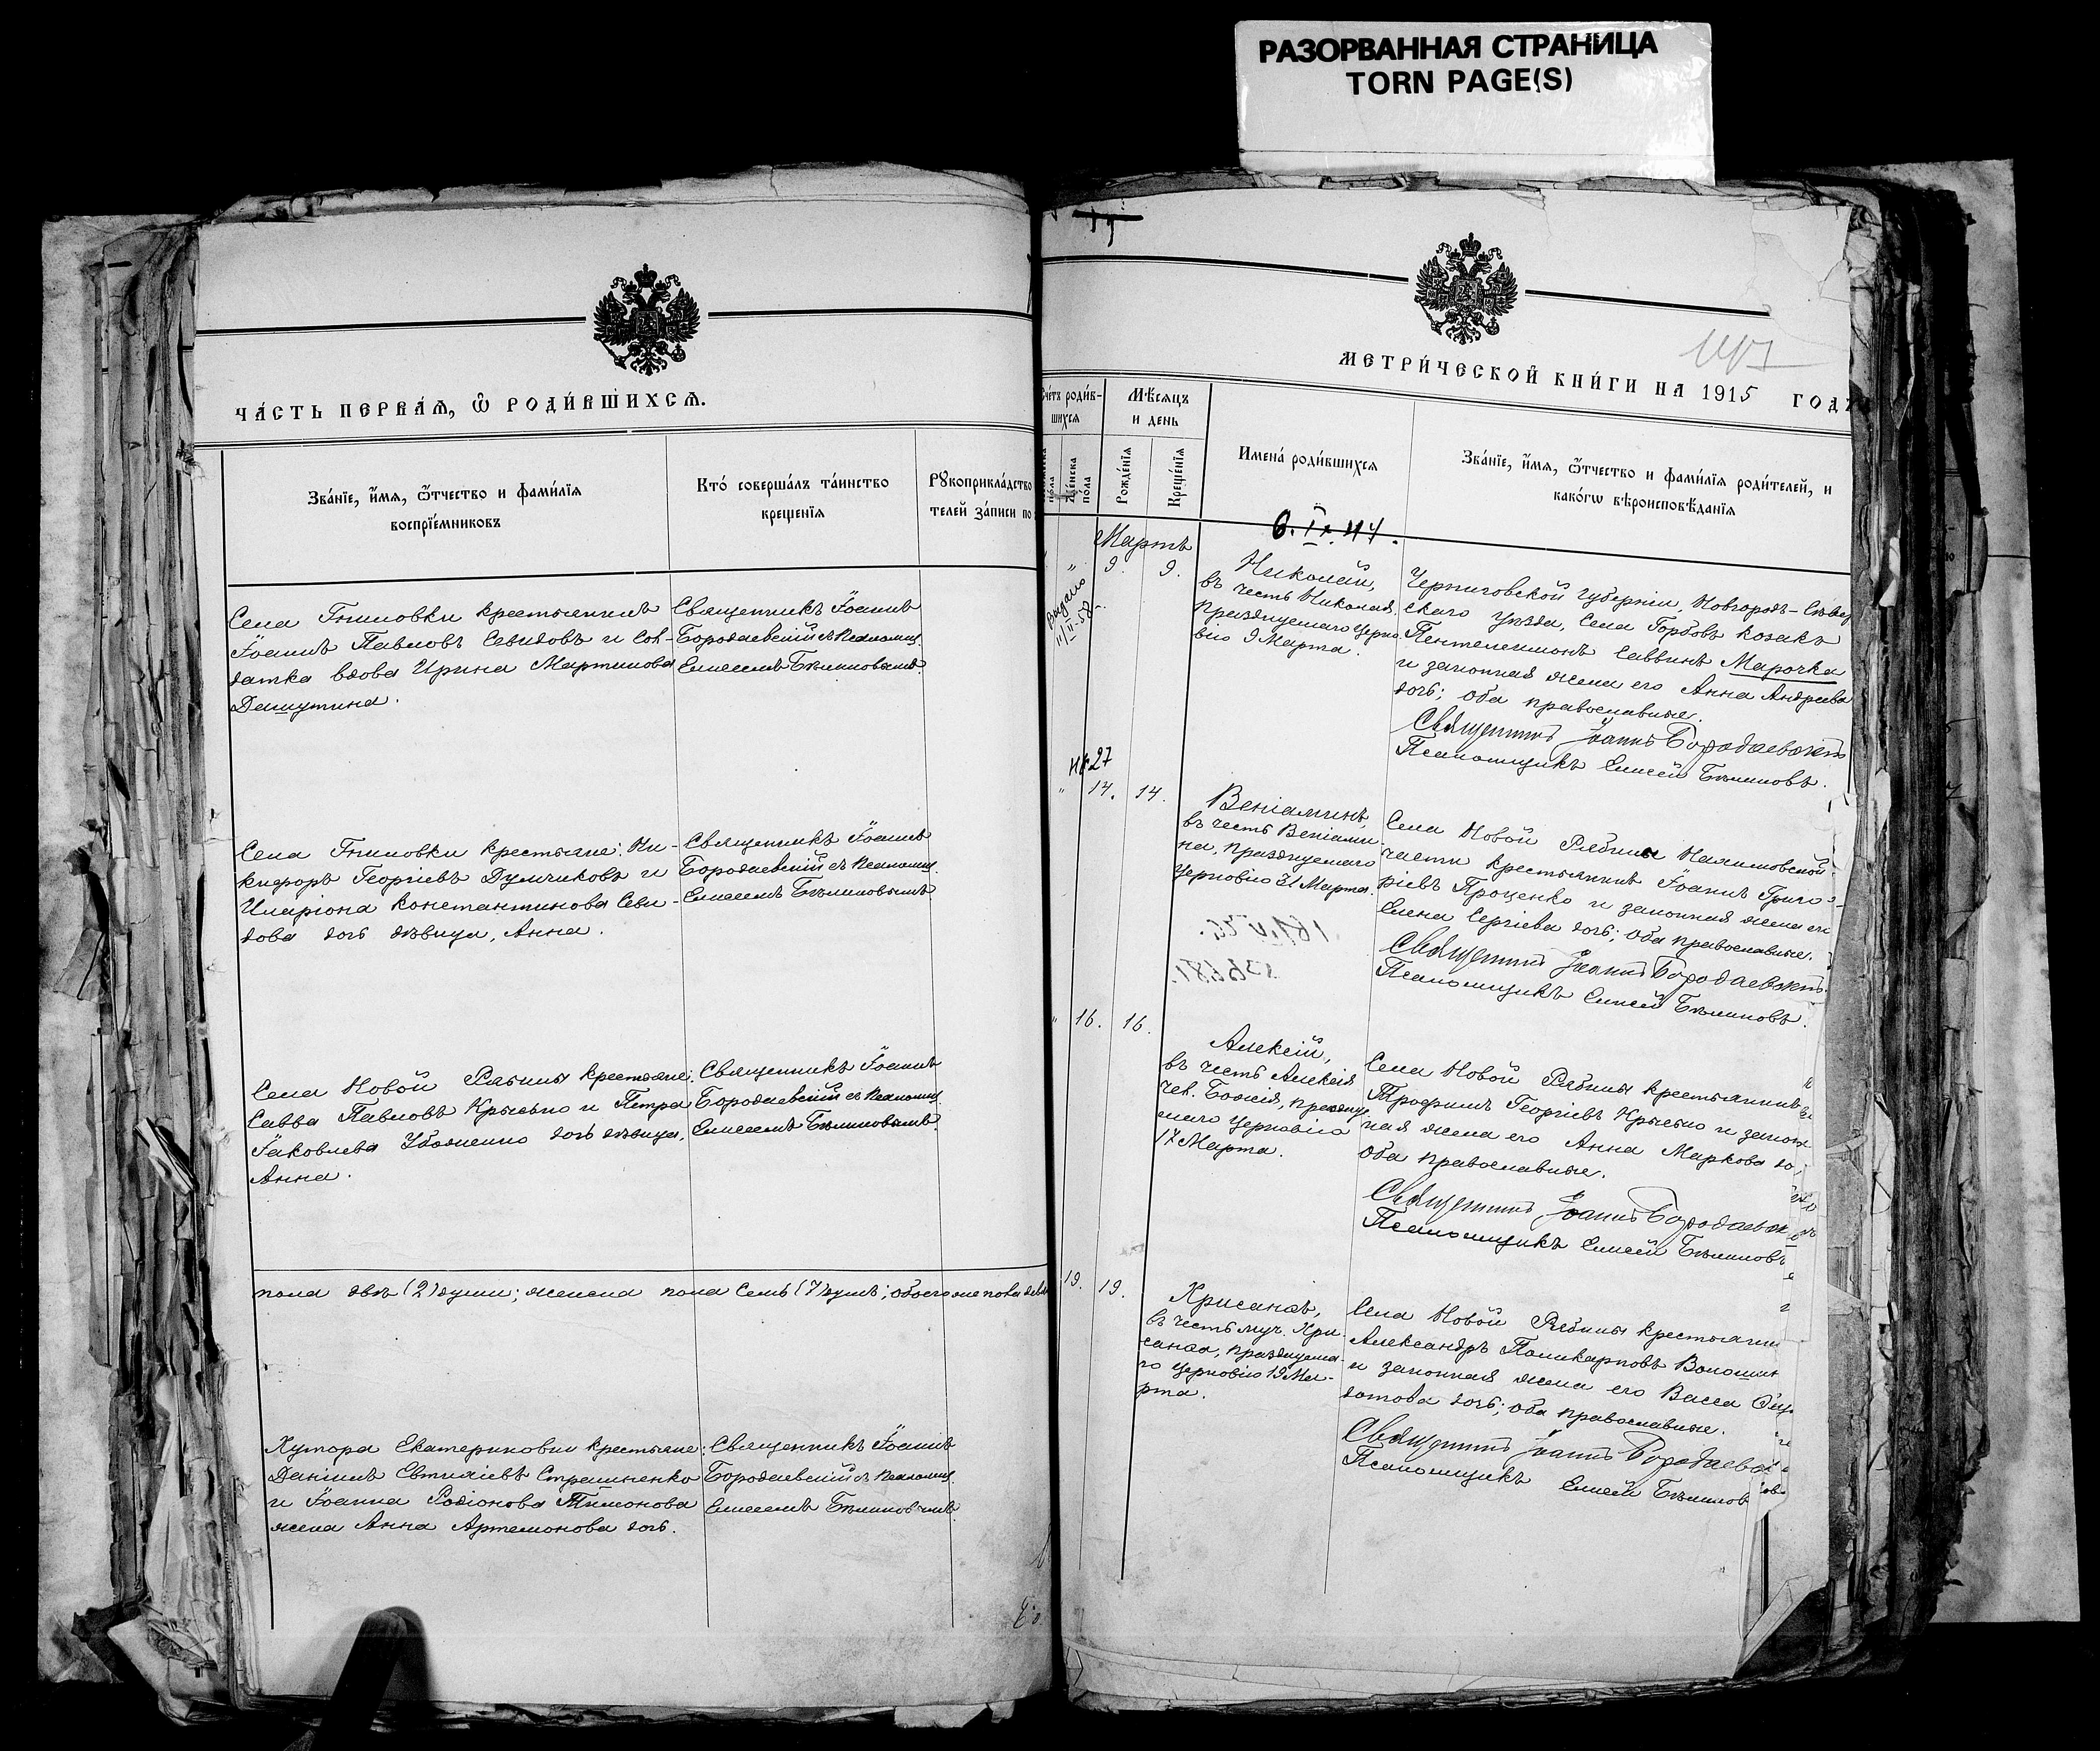 РАЗОРВАННАЯ СТРАНИЦА
TORN PAGE(S)
ЧА́СТЬ ПЕРВА́Ѧ, Ѽ РОДИ́ВШИХСѦ.
Зва́нїе, и҆́мѧ, ѻ҆́тчество и фами́лїѧ
воспрїе́мниковъ
Кто́ соверша́лъ та́инство
креще́нїѧ
Рꙋкоприкла́дство
телей за́писи по
Села Гниловки крестьянинъ
Іоаннъ Павловъ Севидовъ и сол-
датка вдова Ирина Мартинова
Дашутина.
Священникъ Іоаннъ
Бородаевскій съ псаломщ.
Елисеемъ Бѣлиновымъ.
Села Гниловки крестьяне: Ни-
кифоръ Георгіевъ Думчиковъ и
Иларіона Константинова Севи-
дова дочь дѣвица, Анна.
Священникъ Іоаннъ
Бородаевскій съ псаломщ.
Елисеемъ Бѣлиновымъ.
Села Новой Рябины крестьяне:
Савва Павловъ Крысько и Петра
Іаковлева Убоженко дочь дѣвица,
Анна.
Священникъ Іоаннъ
Бородаевскій съ псаломщ.
Елисеемъ Бѣлиновымъ.
пола двѣ (2) души; женска пола семь (7) душъ; обоего же пола девя
Хутора Екатериновки крестьяне:
Даніилъ Евтихіевъ Страшненко
и Іоанна Родіонова Тимонова
жена Анна Артемонова дочь.
Священникъ Іоаннъ
Бородаевскій съ псаломщ.
Елисеемъ Бѣлиновымъ.
МЕТРИ́ЧЕСКОЙ КНИ́ГИ НА 1915 ГОДЪ
Сче́тъ роди́в-
шихсѧ
Мѣ́сѧцъ
и день
Же́нска
по́ла
Рожде́нїѧ
Креще́нїѧ
Имена́ роди́вшихсѧ
Зва́нїе, и҆́мѧ, ѻ҆́тчество и фами́лїѧ роди́телей, и
како́гѡ вѣроисповѣ́данїѧ
Мартъ
" 9. 9.
Выдано
11/II-58
Николай,
въ честь Николая,
празднуемаго церко-
вію 9 Марта.
Черниговской губерніи, Новгородъ-Сѣвер
скаго уѣзда, села Горбовъ козакъ
Пентелеимонъ Саввинъ Марочка
и законная жена его Анна Андреева
дочь; оба православные.
Священникъ Іоаннъ Бородаевскій
Псаломщикъ Елисей Бѣлиновъ.
№27
" 14. 14.
Веніаминъ,
въ честь Веніами-
на, празднуемаго
церковію 31 Марта.
Села Новой Рябины
части крестьянинъ Іоаннъ Григо-
ріевъ Проценко и законная жена его
Елена Сергіева дочь; оба православные.
Священникъ Іоаннъ Бородаевскій
Псаломщикъ Елисей Бѣлиновъ.
" 16. 16.
Алексій,
въ честь Алексія
чел. Божія, праздну-
емаго церковію
17 Марта.
Села Новой Рябины крестьянинъ
Трофимъ Георгіевъ Крысько и закон
ная жена его Анна Маркова до
оба православные.
Священникъ Іоаннъ Бородаевск
Псаломщикъ Елисей Бѣлиновъ
19. 19.
Хрисанѳъ,
въ честь муч. Хри-
санѳа, празднуема-
го церковію 19 Ма-
рта.
Села Новой Рябины крестьянин
Александръ Поликарповъ Волошин
и законная жена его Васса
дотова дочь; оба православные.
Священникъ Іоаннъ Бородаевск
Псаломщикъ Елисей Бѣлинов